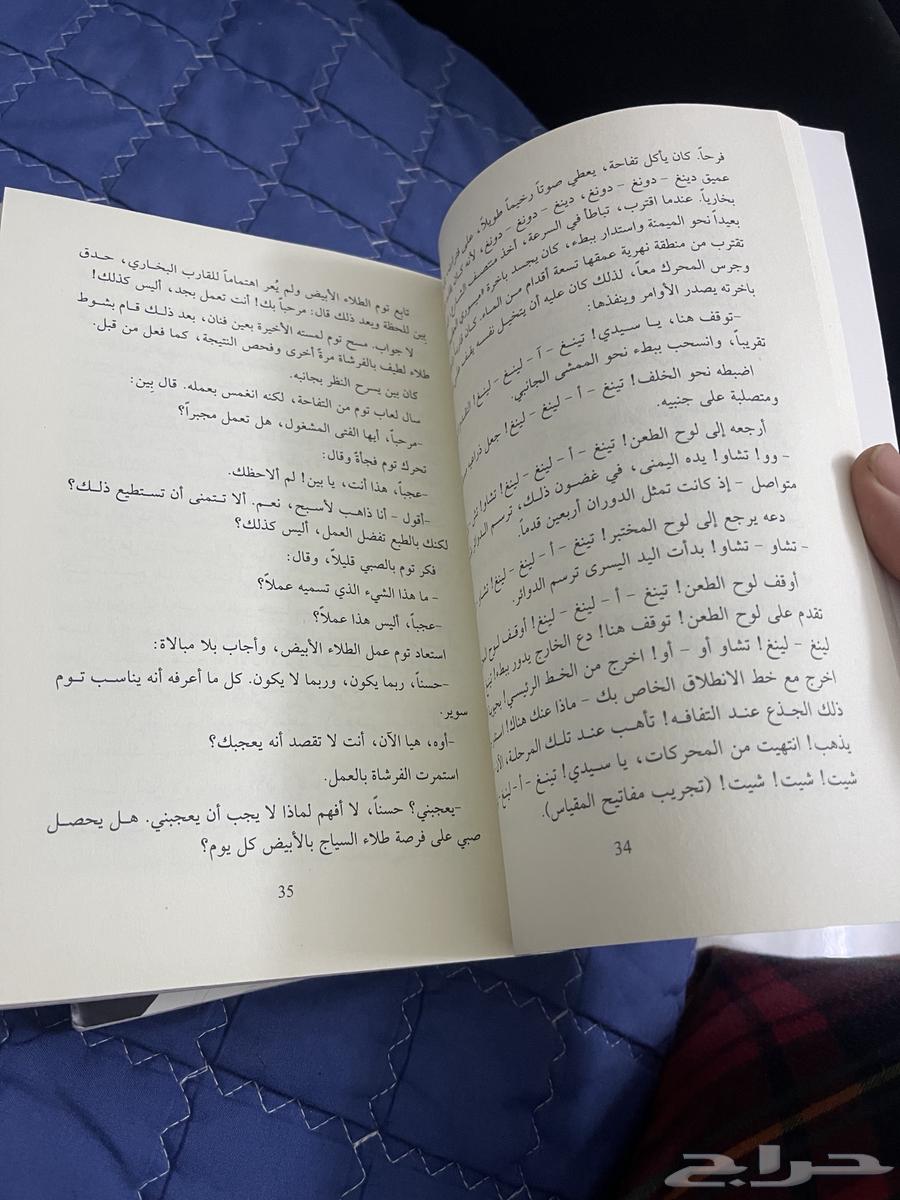 فرحاً. كان يأكل تفاحة، يعطي صوتاً رخيماً طويلاً، على
عميق دينغ - دونغ - دونغ، دينغ - دونغ - دونغ، لأنه كان
بخارياً. عندما اقترب، تباطأ في السرعة، أخذ منتصف
بعيداً نحو الميمنة واستدار ببطء، كان يجسد باخرة
تقترب من منطقة نهرية عمقها تسعة أقدام من الماء. كان
وجرس المحرك معاً، لذلك كان عليه أن يتخيل نفسه يقف على
باخرته يصدر الأوامر وينفذها:
-توقف هنا، يا سيدي! تينغ - آ - لينغ - لينغ!
تقريباً، وانسحب ببطء نحو الممشى الجانبي.
اضبطه نحو الخلف! تينغ - أ - لينغ - لينغ! جعل
ومتصلبة على جنبيه.
أرجعه إلى لوح الطعن! تينغ - أ - لينغ - لينغ! تشاو!
- وو! تشاو! يده اليمنى، في غضون ذلك، ترسم الدوائر
متواصل - إذ كانت تمثل الدوران أربعين قدماً.
دعه يرجع إلى لوح المختبر! تينغ - أ - لينغ - لينغ!
- تشاو - تشاو! بدأت اليد اليسرى ترسم الدوائر.
أوقف لوح الطعن! تينغ - أ - لينغ - لينغ! أوقف لوح
تقدم على لوح الطعن! توقف هنا! دع الخارج يدور ببطء!
لينغ - لينغ! تشاو أو - أو! اخرج من الخط الرئيسي!
اخرج مع خط الانطلاق الخاص بك - ماذا عنك هناك!
ذلك الجذع عند التفافه! تأهب عند تلك المرحلة،
يذهب! انتهيت من المحركات، يا سيدي! تينغ - أ - لينغ
شيت! شيت! شيت! (تجريب مفاتيح المقياس).
34
تابع توم الطلاء الأبيض ولم يُعر اهتماماً للقارب البخاري، حدق
بين للحظة وبعد ذلك قال: مرحباً بك! أنت تعمل بجد، أليس كذلك!
لا جواب. مسح توم لمسته الأخيرة بعين فنان، بعد ذلك قام بشوط
طلاء لطيف بالفرشاة مرةً أخرى وفحص النتيجة، كما فعل من قبل.
كان بين يسرح النظر بجانبه.
سال لعاب توم من التفاحة، لكنه انغمس بعمله. قال بين:
-مرحباً، أيها الفتى المشغول، هل تعمل مجبراً؟
تحرك توم فجأةً وقال:
-عجباً، هذا أنت، يا بين! لم ألاحظك.
-أقول - أنا ذاهب لأسبح، نعم. ألا تتمنى أن تستطيع ذلك؟
لكنك بالطبع تفضل العمل، أليس كذلك؟
فكر توم بالصبي قليلاً، وقال:
- ما هذا الشيء الذي تسميه عملاً؟
-عجباً، أليس هذا عملاً؟
استعاد توم عمل الطلاء الأبيض، وأجاب بلا مبالاة:
-حسناً، ربما يكون، وربما لا يكون. كل ما أعرفه أنه يناسب توم
سوير.
-أوه، هيا الآن، أنت لا تقصد أنه يعجبك؟
استمرت الفرشاة بالعمل.
-يعجبني؟ حسناً، لا أفهم لماذا لا يجب أن يعجبني. هل يحصل
صبي على فرصة طلاء السياج بالأبيض كل يوم؟
35
حراج